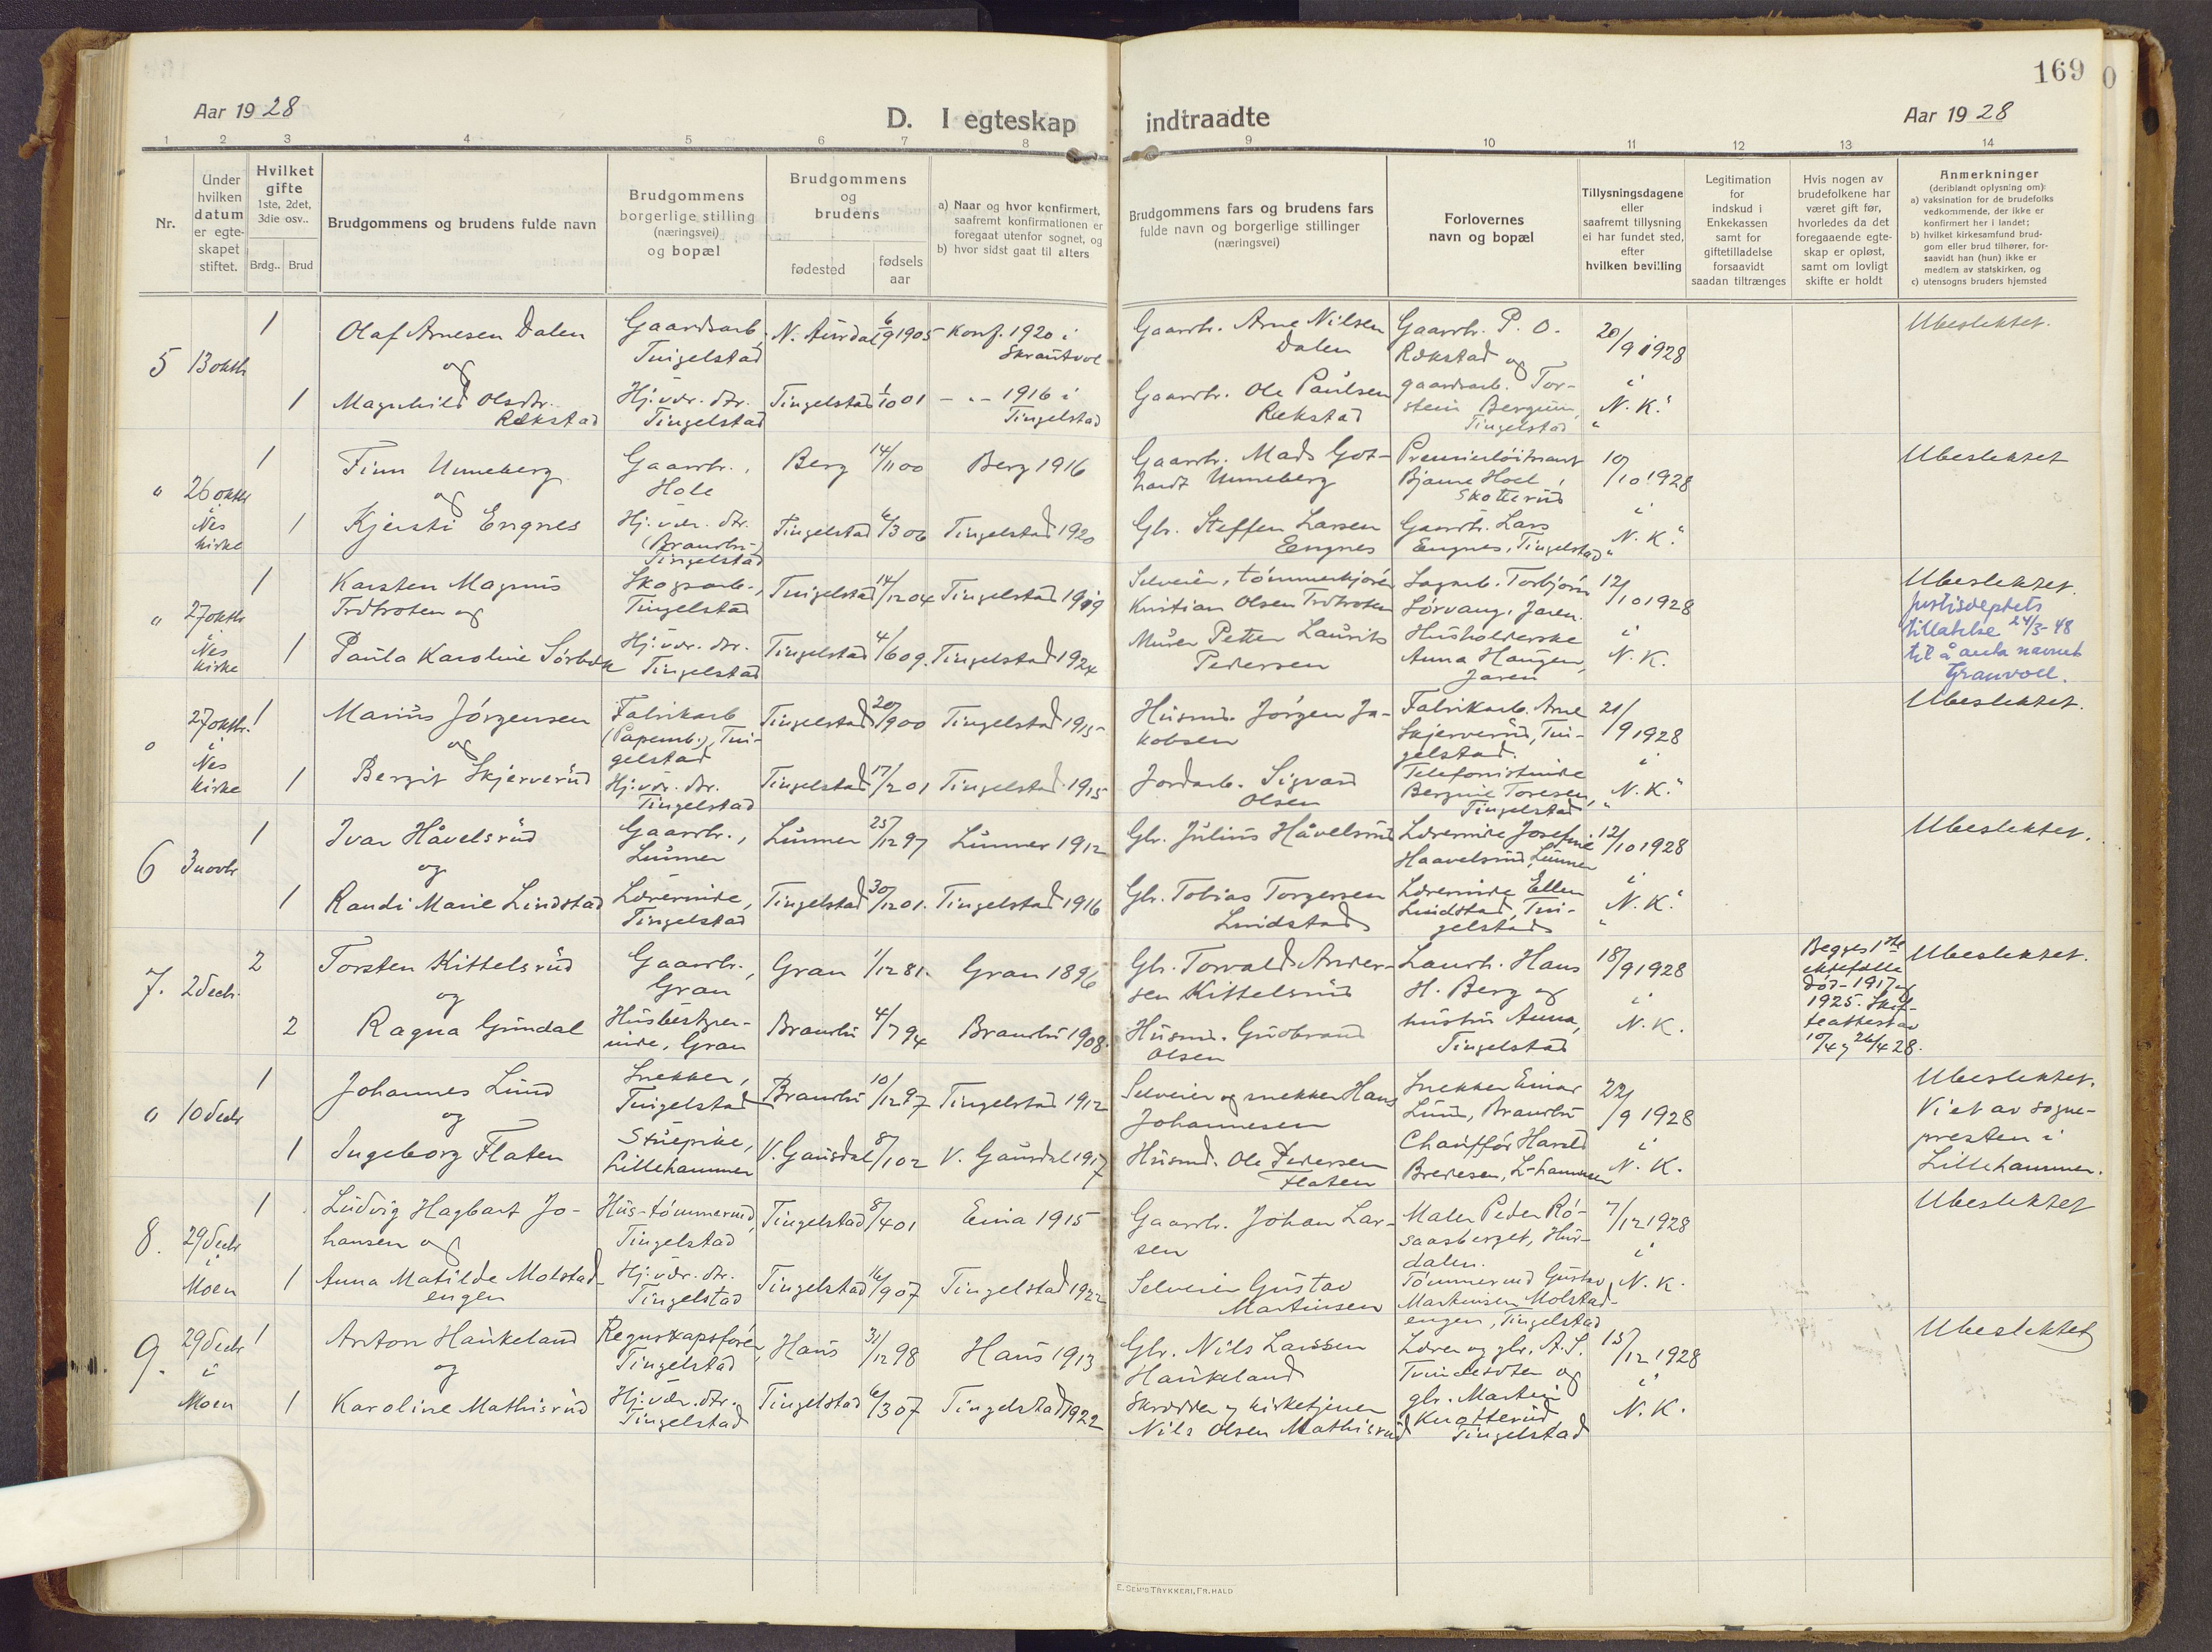 169
Aar 1928
D. I egteskap indtraadte
Aar 1928
1 2 3 4 5 6 7 8 9 10 11 12 13 14
Nr.
Under hvilken datum er egteskapet stiftet.
Hvilket gifte 1ste, 2det, 3die osv..
Brdg.. Brud
Brudgommens og brudens fulde navn
Brudgommens borgerlige stilling (næringsvei) og bopæl
Brudgommens og brudens
fødested
fødsels aar
a) Naar og hvor konfirmert, saafremt konfirmationen er foregaat utenfor sognet, og
b) hvor sidst gaat til alters
Brudgommens fars og brudens fars fulde navn og borgerlige stillinger (næringsvei)
Forlovernes navn og bopæl
Tillysningsdagene eller saafremt tillysning ei har fundet sted, efter hvilken bevilling
Legitimation for indskud i Enkekassen samt for giftetilladelse forsaavidt saadan tiltrænges
Hvis nogen av brudefolkene har været gift før, hvorledes da det foregaaende egteskap er opløst, samt om lovligt skifte er holdt
Anmerkninger (deriblandt oplysning om):
a) vaksination for de brudefolks vedkommende, der ikke er konfirmert her i landet;
b) hvilket kirkesamfund brudgom eller brud tilhører, forsaavidt han (hun) ikke er medlem av statskirken, og
c) utensogns bruders hjemsted
5 13 oktbr 1 Olaf Arnesen Dalen Gaardsarb. Tingelstad N. Aurdal 6/9 1905 Konf. 1920 i Skrautvol Gaardbr. Arne Nilsen Dalen Gaardbr. P. O. Rækstad og 20/9 1928 Ubeslektet.
og
1 Magnhild Olsdtr. Rækstad Hj. vær. dtr. Tingelstad Tingelstad 1/10 01 - " - 1916 i Tingelstad Gaardbr. Ole Paulsen Rækstad gaardsarb. Torstein Bergum, Tingelstad i N. K.
" 26 oktbr i Nes kirke 1 Finn Unneberg Gaardbr., Hole Berg 14/11 00 Berg 1916 Gaardbr. Mads Gothardt Unneberg Premierløitnant Bjarne Hoel, Skotterud 10/10 1928 Ubeslektet
og
1 Kjersti Engnes Hj. vær. dtr. (Brandbu) Tingelstad Tingelstad 6/3 06 Tingelstad 1920 Gbr. Steffen Larsen Engnes Gaardbr. Lars Engnes, Tingelstad i N. K.
" 27 oktbr i Nes kirke 1 Karsten Magnus Trøtroten og Skogsarb., Tingelstad Tingelstad 14/12 04 Tingelstad 1919 Selveier, tømmerkjører Kristian Olsen Trøtroten Sagarb. Torbjørn Sørvang, Jaren. 12/10 1928 Ubeslektet.
Justisdeptets tillatelse 24/3-48 til å anta navnet Granvoll.
1 Paula Karoline Sørbæk Hj. vær. dtr. Tingelstad Tingelstad 4/6 09. Tingelstad 1924 Murer Petter Laurits Pedersen Husholderske Anna Haugen, Jaren i N. K.
" 27 oktbr. i Nes kirke 1 Marius Jørgensen Fabrikarb (Papemb.), Tingelstad Tingelstad 20/9 00 Tingelstad 1915 Husmd. Jørgen Jakobsen Fabrikarb. Arne Skjerverud, Tingelstad. 21/9 1928 Ubeslektet.
og
1 Bergit Skjerverud Hj. vær. dtr. Tingelstad Tingelstad 17/2 01 Tingelstad 1915 Jordarb. Sigvard Olsen Telefonistinde Bergine Toresen, Tingelstad i N. K.
6 3 novbr 1 Ivar Håvelsrud Gaardbr., Lunner Lunner 25/12 97 Lunner 1912 Gbr. Julius Håvelsrud Lærerinde Josefine Haavelsrud, Lunner 12/10 1928 Ubeslektet.
og
1 Randi Marie Lindstad Lærerinde, Tingelstad Tingelstad 30/12 01. Tingelstad 1916 Gbr. Tobias Torgersen Lindstad Lærerinde Ellen Lindstad, Tingelstad i N. K.
7. 2 decbr. 2 Torsten Kittelsrud Gaardbr., Gran Gran 1/12 81. Gran 1896 Gbr. Torvald Andersen Kittelsrud Landh. Hans H. Berg og 18/9 1928 Begges 1ste ektefælle død - 1917 og 1925. Skifteattest av 10/4 og 26/4 28. Ubeslektet.
og
2 Ragna Grindal Husbestyrerinde, Gran Brandbu 4/7 94 Brandbu 1908. Husmd. Gudbrand Olsen hustru Anna, Tingelstad i N. K.
" 10 decbr 1 Johannes Lund Snekker, Tingelstad Brandbu 10/12 97 Tingelstad 1912 Selveier og snekker Hans Johannesen Snekker Einar Lund, Brandbu 22/9 1928 Ubeslektet. Viet av sognepresten i Lillehammer.
og
1 Ingeborg Flaten Stuepike, Lillehammer V. Gausdal 8/1 02 V. Gausdal 1917 Husmd. Ole Pedersen Flaten Chauffør Harald Bredesen, L-hammer i N. K.
8. 29 decbr i Moen 1 Ludvig Hagbart Johansen og Hus-tømmermd, Tingelstad Tingelstad 8/4 01 Eina 1915 Gaardbr. Johan Larsen Maler Peder Røsaasberget, Hurdalen. 7/12 1928 Ubeslektet
1 Anna Matilde Molstadengen Hj. vær. dtr. Tingelstad Tingelstad 16/9 07 Tingelstad 1922 Selveier Gustav Martinsen Tømmermd Gustav Martinsen Molstadengen, Tingelstad i N. K.
9. 29 decbr i Moen 1 Anton Haukeland Regnskapsfører, Tingelstad Haus 31/12 98 Haus 1913 Gbr. Nils Larssen Haukeland Lærer og gbr. A. S. Tvindesøten og 15/12 1928 Ubeslektet
og
1 Karoline Mathisrud Hj. vær. dtr. Tingelstad Tingelstad 6/3 07 Tingelstad 1922 Skrædder og kirketjener Nils Olsen Mathisrud gbr. Martin Knatterud Tingelstad i N. K.
E. SEM'S TRYKKERI, FR.HALD